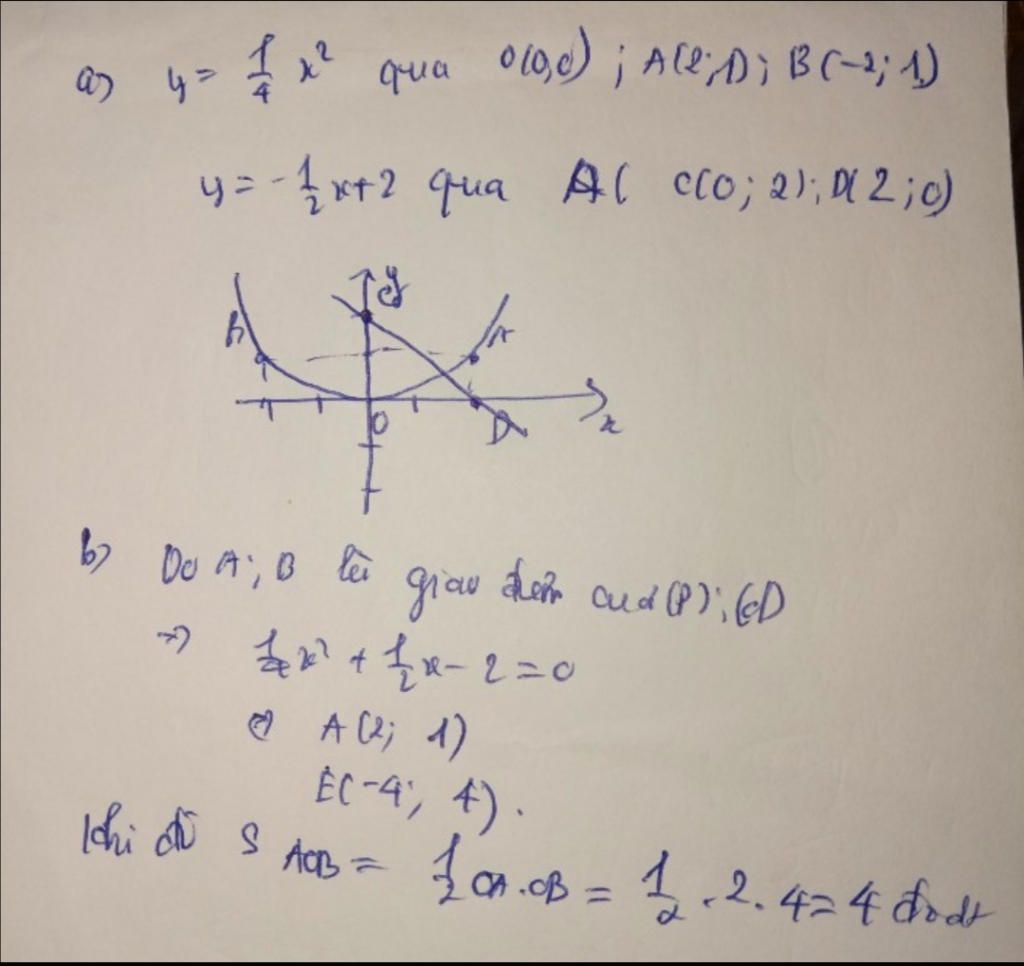 a) y = 1/4 x² qua O(0,0) ; A(2;1) ; B(-2; 1)
y = -1/2 x + 2 qua A( C(0; 2); D(2; 0)
y
B A
O D x
b) Do A; B là giao điểm của (P); (d)
=> 1/4 x² + 1/2 x - 2 = 0
⇔ A(2; 1)
E(-4; 4).
Khi đó S AOB = 1/2 OA.OB = 1/2 . 2. 4 = 4 đvdt